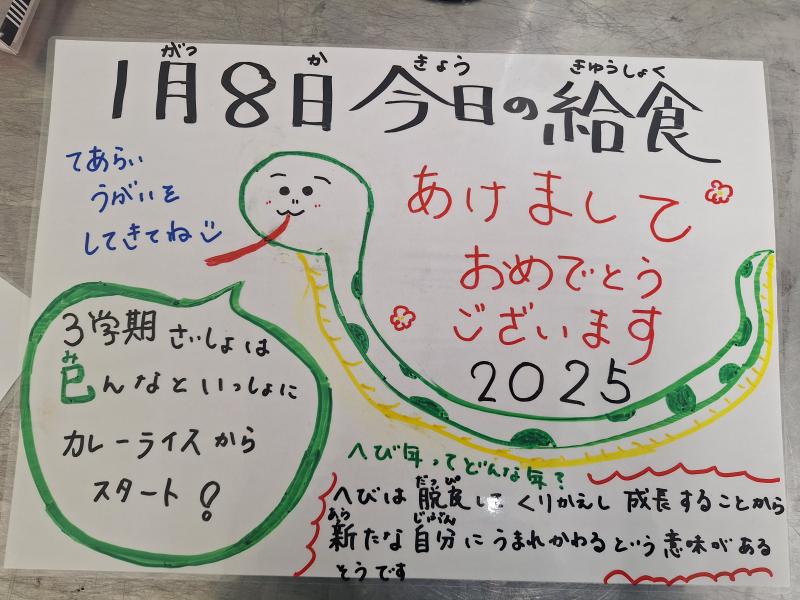 1月8日 今日の給食
がつ か きょう きゅうしょく
てあらい
うがいを
してきてね
あけまして
おめでとう
ございます
2025
3学期 さいしょは
み
巳んなといっしょに
カレーライスから
スタート!
へび年ってどんな年?
だっぴ
へびは 脱皮して くりかえし 成長することから
あら じぶん
新たな自分に うまれかわるという意味がある
そうです